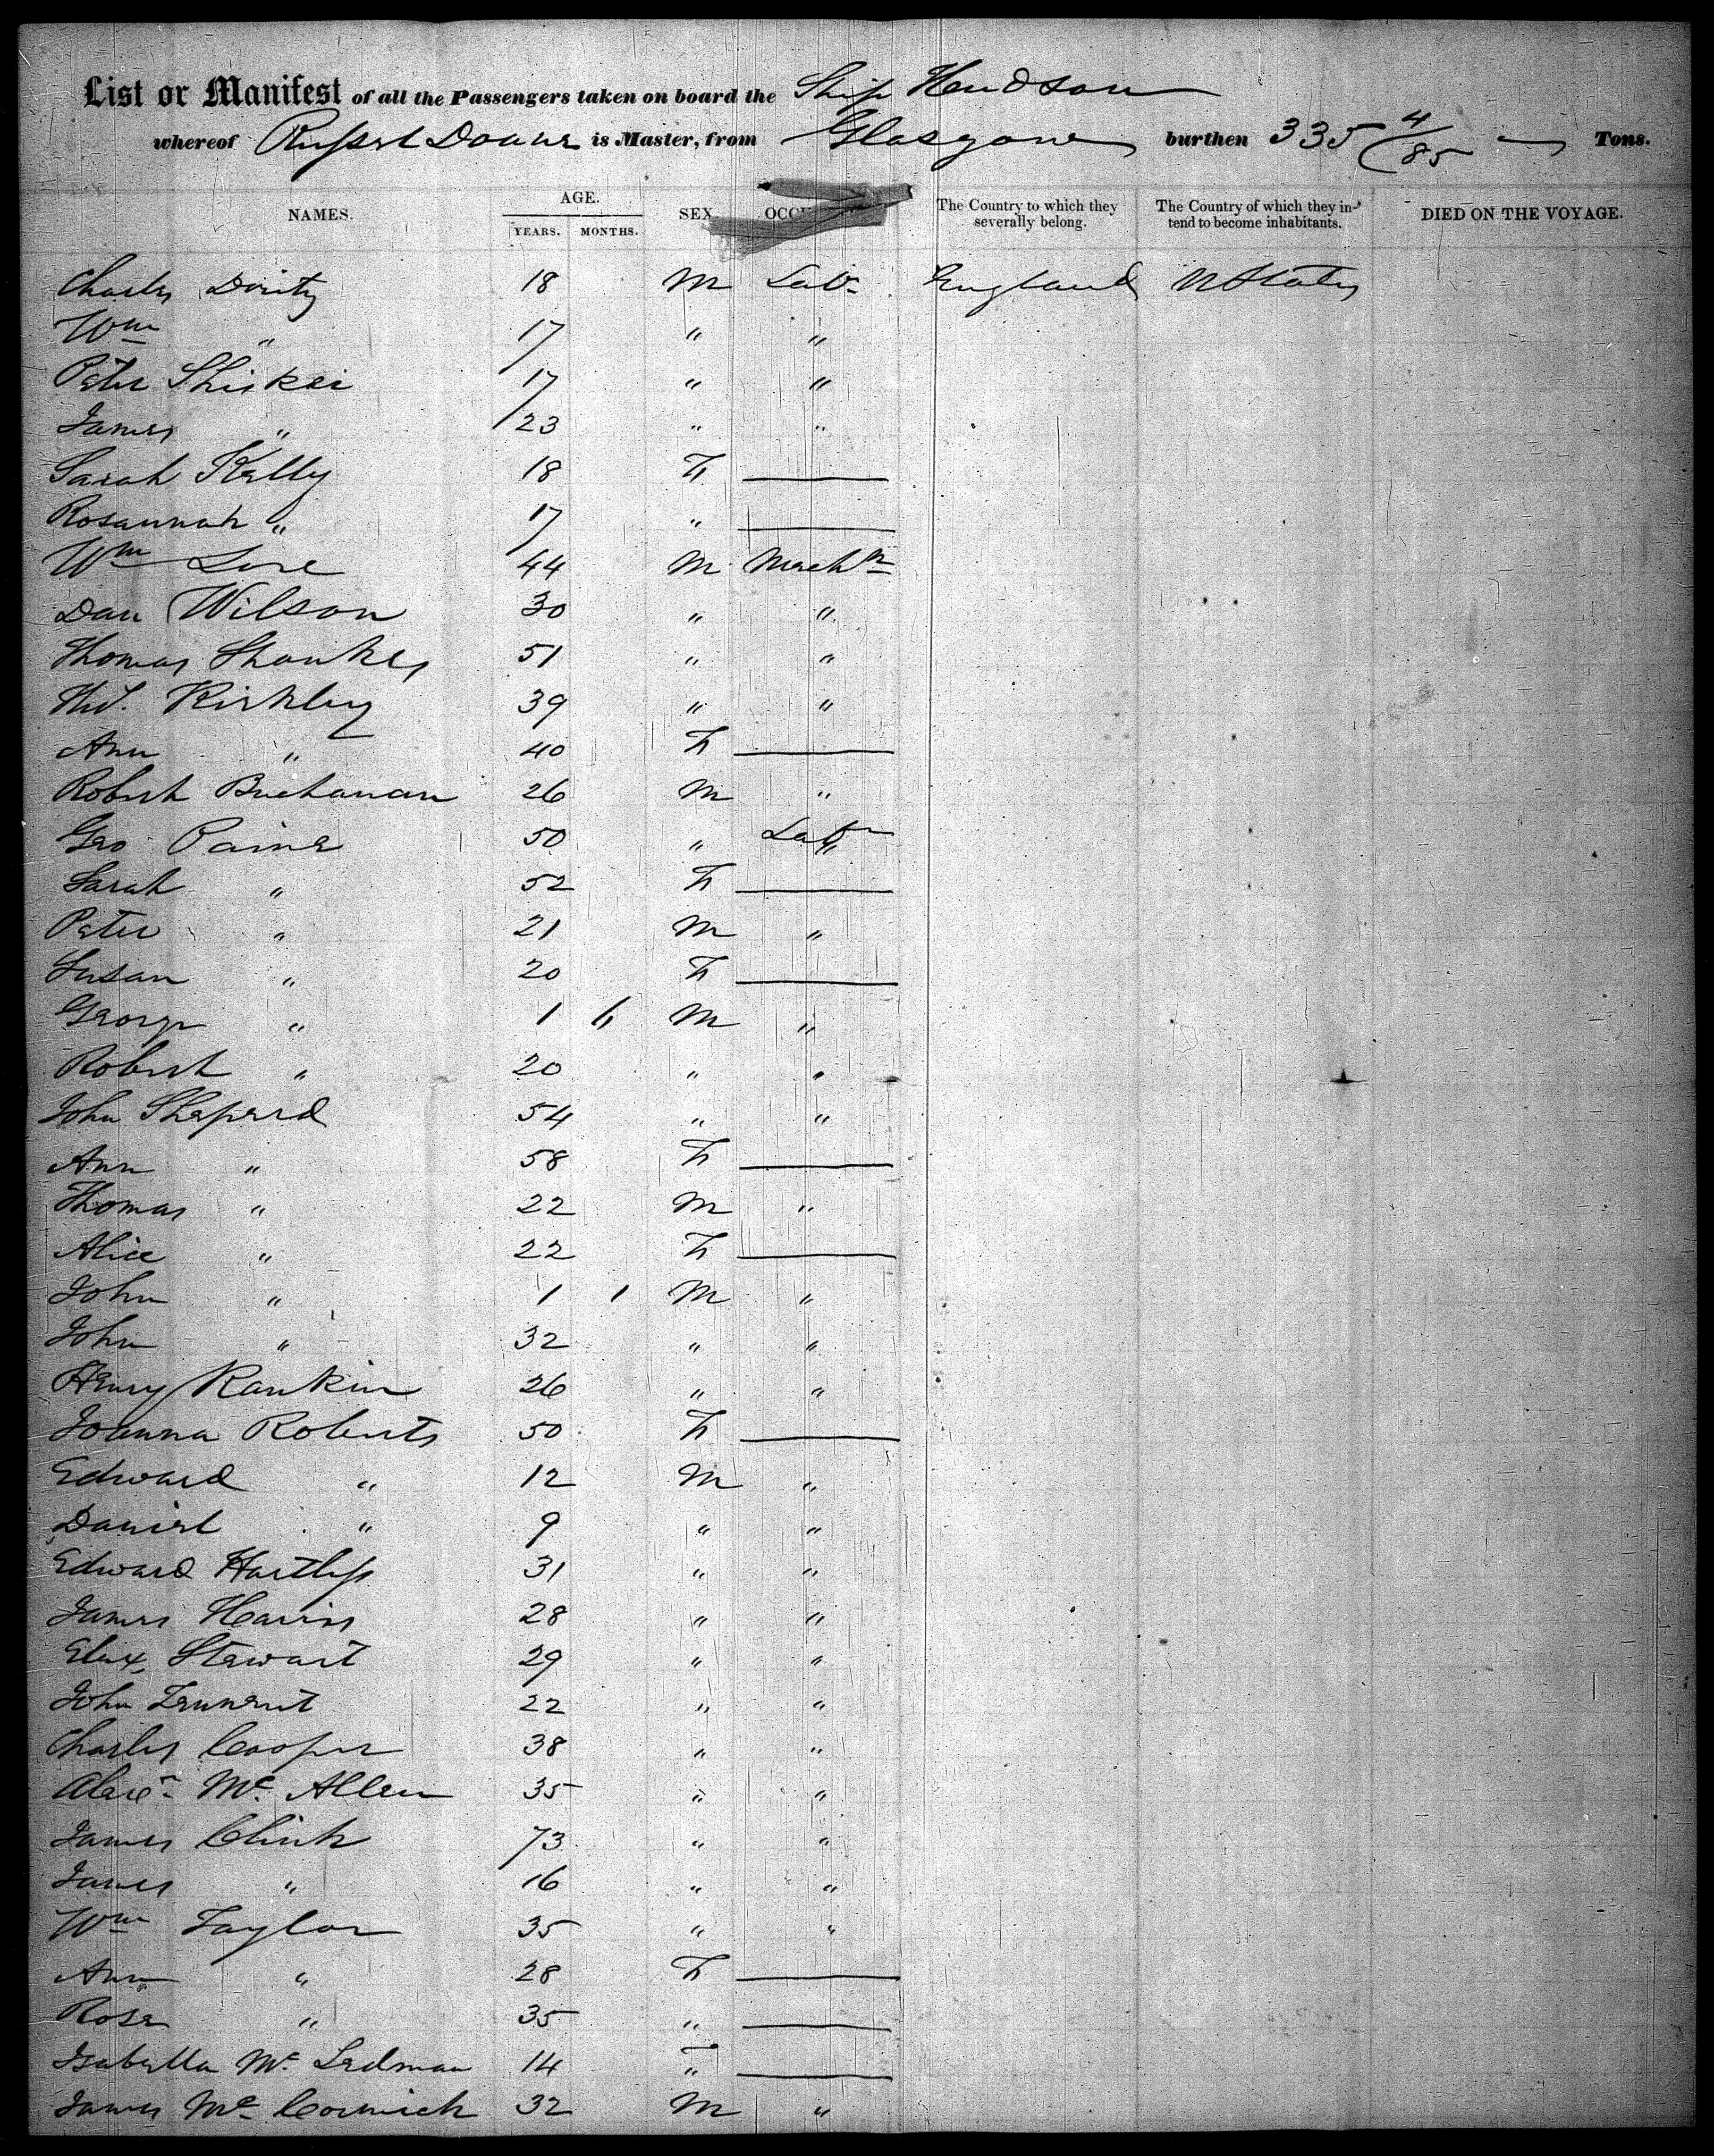 List or Manifest of all the Passengers taken on board the Ship Hudson
whereof Russel Doane is Master, from Glasgow burthen 335 4/85 Tons.
NAMES. AGE. YEARS. MONTHS. SEX. OCCU The Country to which they severally belong. The Country of which they intend to become inhabitants. DIED ON THE VOYAGE.
Charles 18 M Labr England UStates
Wm " 17 " "
Peter 17 " "
James " 23 " "
Sarah Kelly 18 F
Rosannah " 17 "
Wm 44 M Mechn
Dan Wilson 30 " "
Thomas Shankes 51 " "
Kirkley 39 " "
Ann " 40 F
Robert Buchanan 26 M "
Geo Paine 50 " Labr
Sarah " 52 F
Peter " 21 M "
Susan " 20 F
George " 1 6 M "
Robert " 20 " "
John Sheperd 54 " "
Ann " 58 F
Thomas " 22 M "
Alice " 22 F
John " 1 1 M "
John " 32 " "
Henry Rankin 26 " "
Joanna Roberts 50 F
Edward " 12 M "
Daniel " 9 " "
Edward 31 " "
James Harris 28 " "
Stewart 29 " "
John Tennent 22 " "
Charles Cooper 38 " "
Alexr Mc Allen 35 " "
James Clink 73 " "
James " 16 " "
Wm Taylor 35 " "
Ann " 28 F
Rose " 35 "
Isabella Mc Ledman 14 "
James Mc Cormick 32 M "